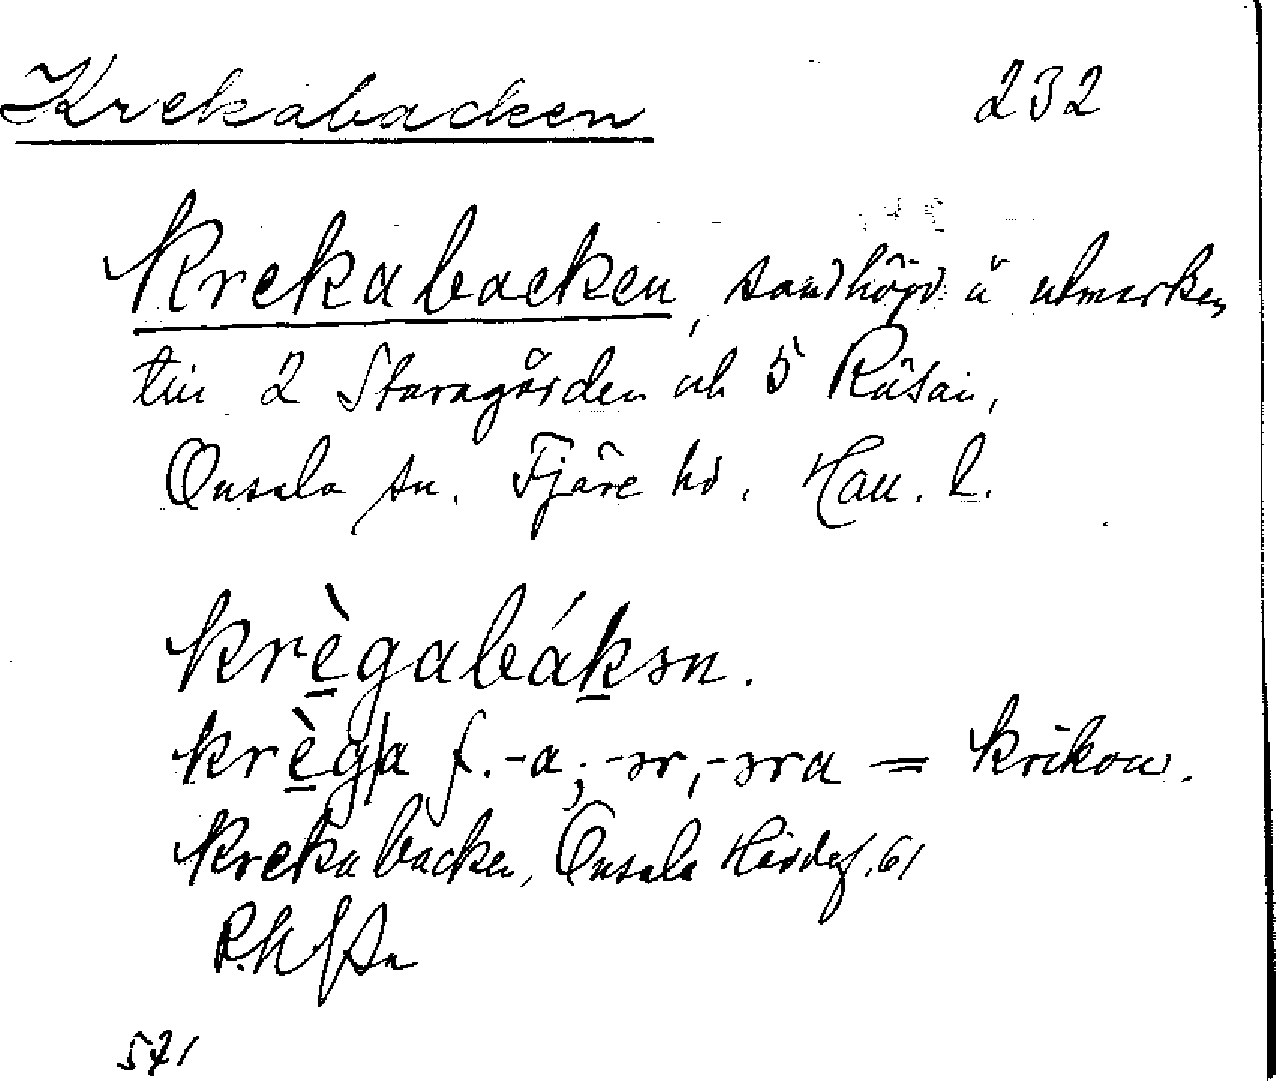 Krekabacken 232
Krekabacken, sandhöjd å utmarken
till 2 Staragården och 5 Råsan,
Onsala sn. Fjäre hd. Hall. l.
krègabákən.
krèg|a f. -a; -ər, -əra = krikon.
Krekabacken, Onsala Härdaf. 61
541